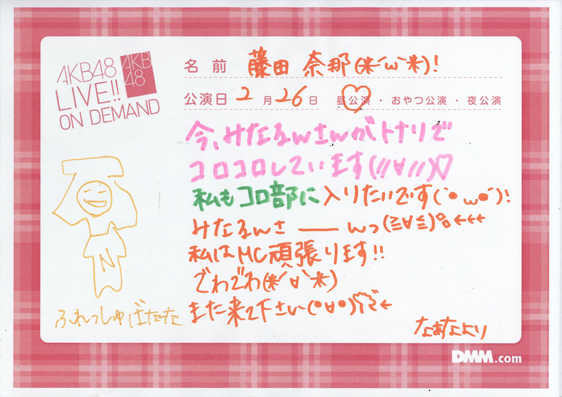 AKB48
LIVE!!
ON DEMAND
AKB
48
名前 藤田 奈那(*´ω`*)!
公演日 2月26日 昼公演・おやつ公演・夜公演
今、みなるんさんがトナリで
コロコロしています(//∀//)♡
私もコロ部に入りたいです(`・ω・´)!
みなるんさ――んっ(≧∀≦)
私はMC頑張ります!!
でわでわ(*´∀`*)
また来て下さい(°∀°)
ふれっしゅばなな
なぁなより
DMM.com